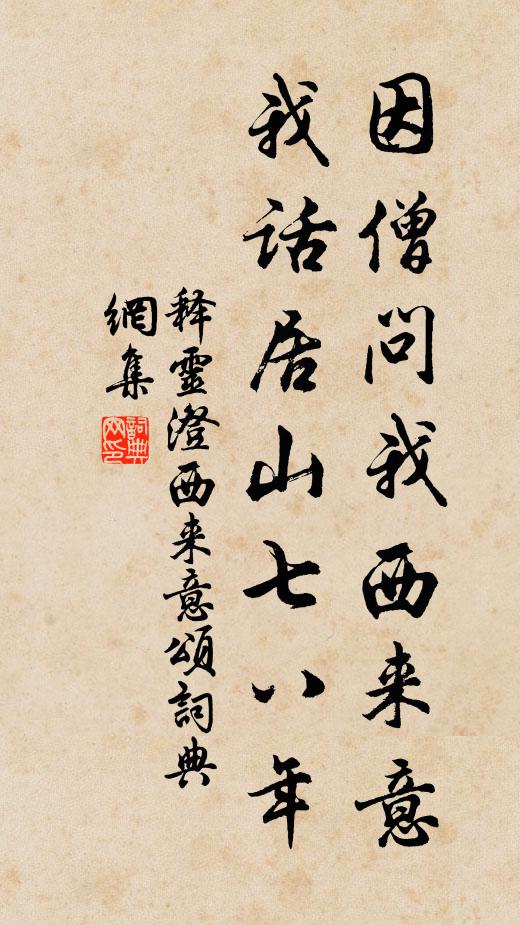 因僧问我西来意
我话居山七八年
释灵澄西来意颂词典
網集
詞典网印